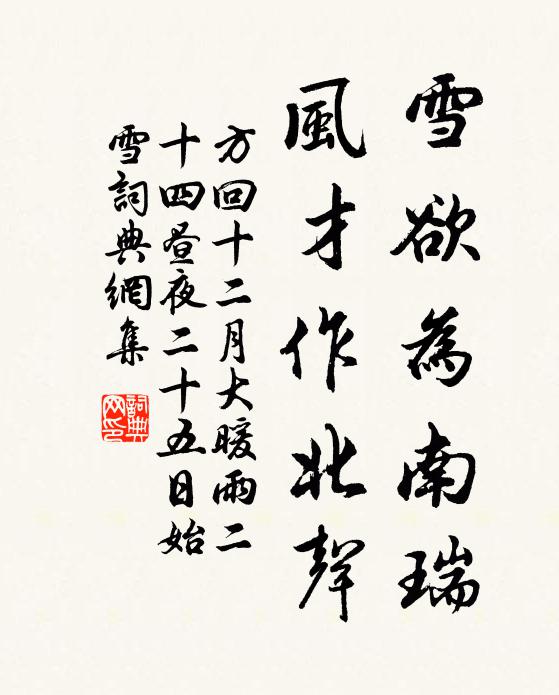 雪欲為南瑞
風才作北聲
方回十二月大暖雨二
十四昼夜二十五日始
雪詞典網集
詞典
网印